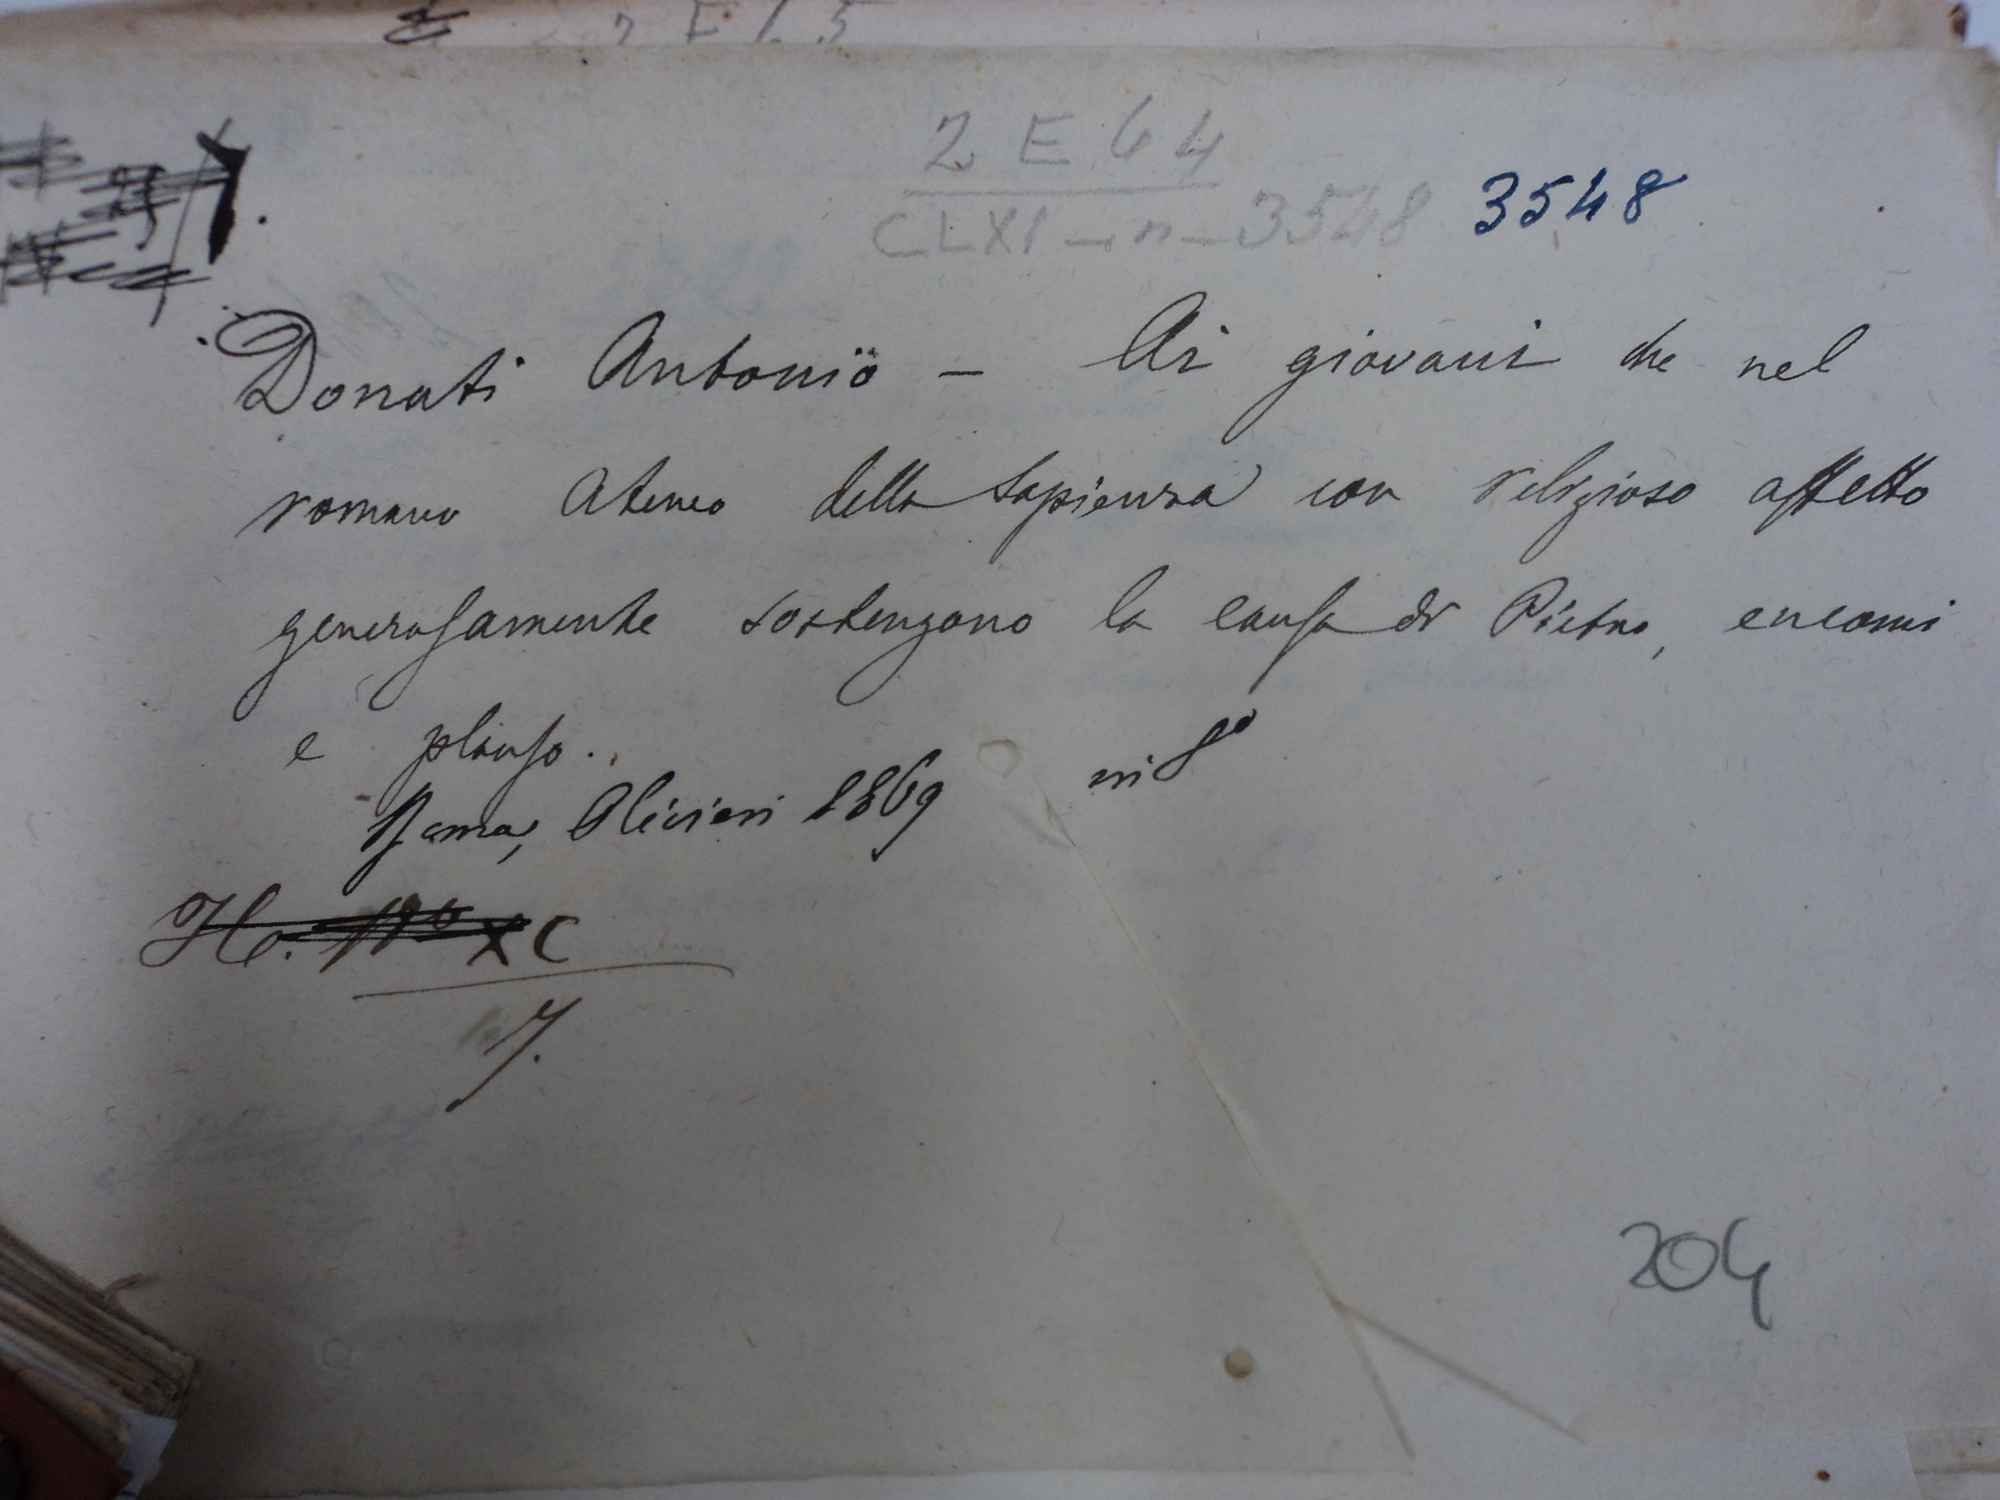 2 E 64
CLXI - n - 3548 3548
Donati Antonio - Ai giovani che nel
romano Ateneo della Sapienza con religioso affetto
generosamente sostengono la causa di Pietro, encomi
e plauso.
Roma, Olivieri 1869 in 8º
XC
7.
204